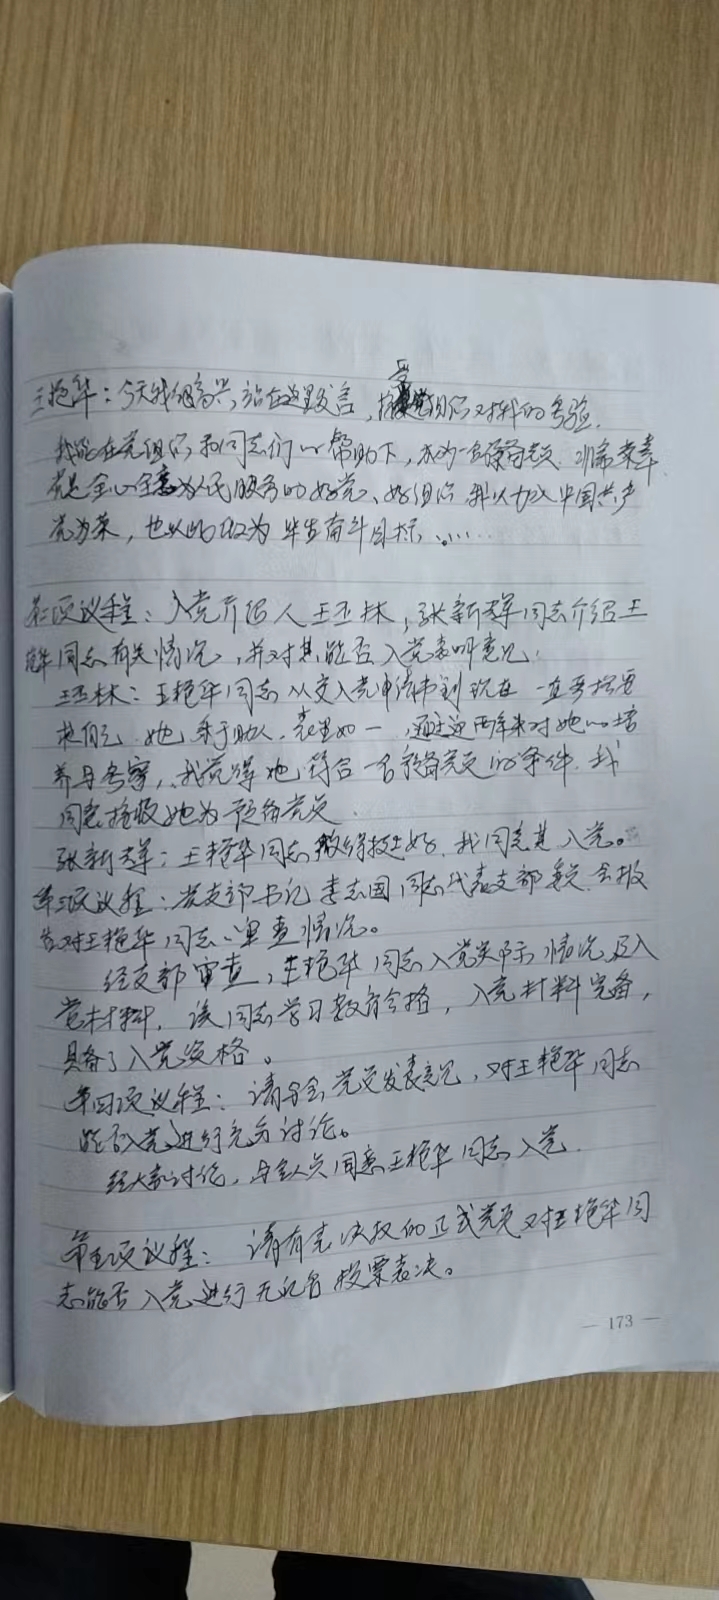 王艳华：今天我很高兴，站在这里发言，接受党组织对我的考验。
我能在党组织和同志们的帮助下，成为一名预备党员，非常荣幸
党是全心全意为人民服务的好党、好组织 我以加入中国共产
党为荣，也以此为毕生奋斗目标。……
第二项议程：入党介绍人王丕林，张新群同志介绍王
艳华同志有关情况，并对其能否入党表明意见：
王丕林：王艳华同志从交入党申请书到现在 一直严格要
求自己 她乐于助人，表里如一，通过这两年来对她的培
养与考察，我觉得她符合一名预备党员的条件，我
同意接收她为预备党员。
张新群：王艳华同志 好，我同意其入党。
第三项议程：党支部书记李志国同志代表支部 会报
告对王艳华同志的审查情况。
经支部审查，王艳华同志入党实际情况及入
党材料，该同志学习教育合格，入党材料完备，
具备了入党资格。
第四项议程：请与会党员发表意见，对王艳华同志
能否入党进行充分讨论。
经大家讨论，与会人员同意王艳华同志入党。
第五项议程：请有表决权的正式党员对王艳华同
志能否入党进行无记名投票表决。
— 173 —